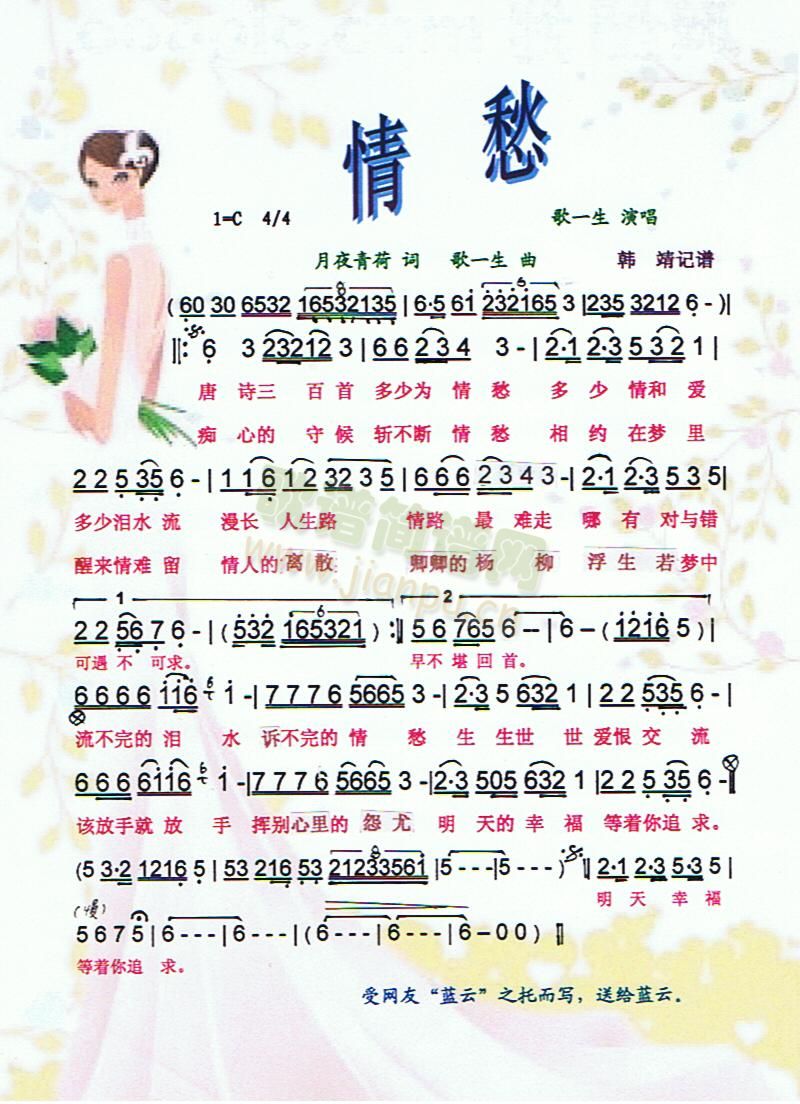 情愁
1=C 4/4 歌一生 演唱
月夜青荷 词 歌一生 曲 韩 靖记谱
(60 30 6532 16532135 | 6·5 61 232165 3 | 235 3212 6 - )|
‖: 6 3 23212 3 | 6 6 2 3 4 3 - | 2·1 2·3 5 3 2 1 |
唐 诗三 百首 多少为 情愁 多少情和爱
痴 心的 守候 斩不断 情愁 相约在梦里
2 2 5 35 6 - | 1 1 6 1 2 3 2 3 5 | 6 6 6 2 3 4 3 - | 2·1 2·3 5 3 5 |
多少泪水 流 漫长 人生路 情路 最 难走 哪 有 对与错
醒来情难 留 情人的 离散 卿卿的 杨 柳 浮生若梦中
1 6 2
2 2 56 7 6 - | (532 165321) :‖ 5 6 765 6 - - | 6 - (1216 5 )|
可遇 不 可求。 早不 堪回首。
6 6 6 6 116 6 1 - | 7 7 7 6 5665 3 - | 2·3 5 632 1 | 2 2 535 6 - |
流不完的 泪 水 诉不完的 情 愁 生 生世 世 爱恨 交 流
6 6 6 6116 6 1 - | 7 7 7 6 5665 3 - | 2·3 505 632 1 | 2 2 5 35 6 - ‖
该放手就 放 手 挥别心里的 怨尤 明 天的 幸 福 等着你追 求。
(5 3·2 1216 5 | 53 216 53 21233561 | 5 - - - | 5 - - ) ‖ 2·1 2·3 5 3 5 |
8
明 天 幸 福
(慢)
5 6 7 5 | 6 - - - | 6 - - - | (6 - - - | 6 - - - | 6 - 0 0 ) ‖
等着你追 求。
受网友“蓝云”之托而写，送给蓝云。
www.jianpu.cn